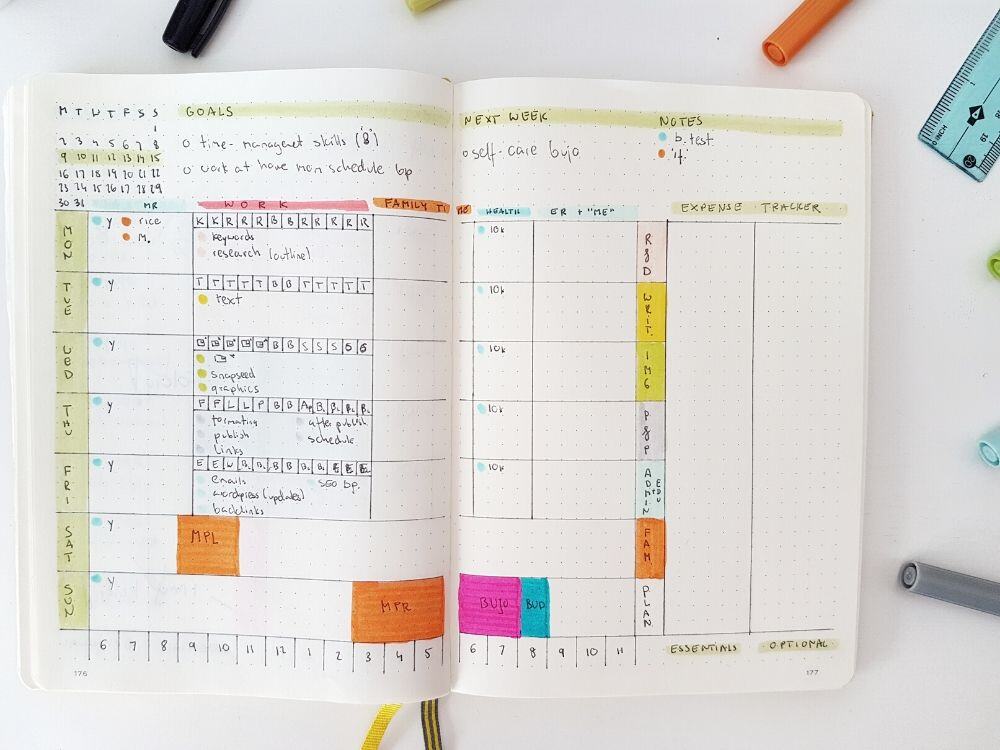 M T W T F S S
1
2 3 4 5 6 7 8
9 10 11 12 13 14 15
16 17 18 19 20 21 22
23 24 25 26 27 28 29
30 31
GOALS
o time-managent skills ('8')
o work at home mom schedule bp
NEXT WEEK
o self-care bujo
NOTES
b. test
MR
WORK
FAMILY TI ME
HEALTH
ER + "ME"
EXPENSE TRACKER
MON
y rice
M.
K K R R R B B R R R R R
keywords
research (outline)
10k
R&D
TUE
y
T T T T T B B T T T T T
text
10k
WRIT.
WED
y
B B S S S
snapseed
graphics
10k
IMG
THU
y
F F L L P B B
formating
publish
links
after publish
schedule
10k
P&P
FRI
y
emails
wordpress (updates)
backlinks
SEO bp.
10k
ADMIN
EDU
SAT
y
MPL
FAM.
SUN
y
MPR
BUJO
BUD
PLAN
6 7 8 9 10 11 12 1 2 3 4 5
6 7 8 9 10 11
ESSENTIALS
OPTIONAL
176
177
0 INCH